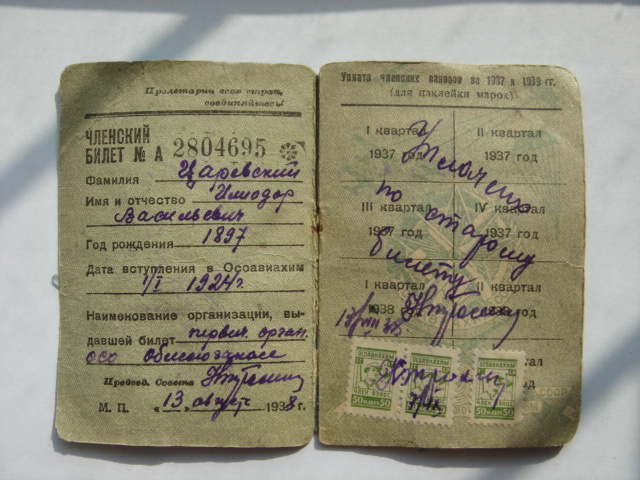 Пролетарии всех стран,
соединяйтесь!
ЧЛЕНСКИЙ
БИЛЕТ № А 2804695
Фамилия Царевский
Имя и отчество Илиодор
Васильевич
Год рождения 1897
Дата вступления в Осоавиахим
1/I 1924 г.
Наименование организации, вы-
давшей билет первич. орган.
осо
Председ. Совета
М. П. „ 13 " август 1938 г.
Уплата членских взносов за 1937 и 1938 гг.
(для наклейки марок)
I квартал II квартал
1937 год 1937 год
Уплачено
III квартал IV квартал
1937 год 1937 год
по старому
билету
I квартал II квартал
1938
13/VIII 38
квартал
год
ОСОАВИАХИМ ОСОАВИАХИМ ОСОАВИАХИМ
ЧЛЕН ВЗНОС ЧЛЕН ВЗНОС
50 КОП 50 50 КОП 50